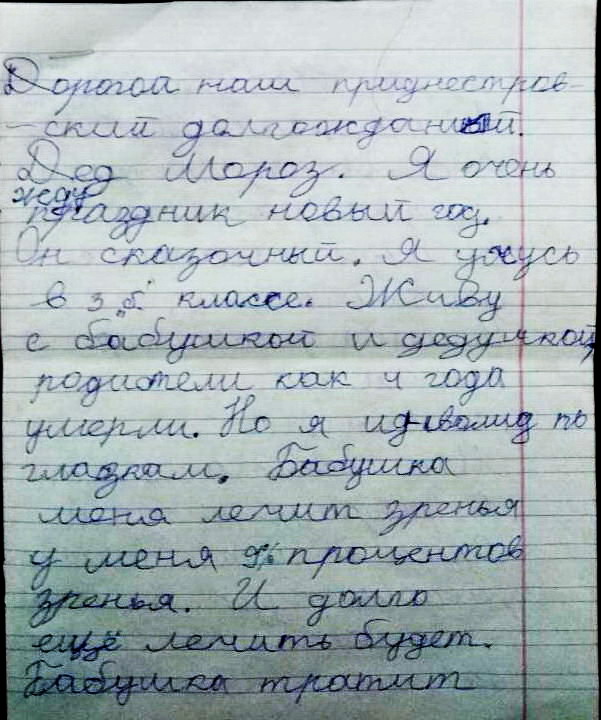 Дорогой наш приднестров-
-ский долгожданный
Дед Мороз. Я очень
жду
праздник новый год.
Он сказочный. Я учусь
в 3 "б" классе. Живу
с бабушкой и дедушкой,
родители как 4 года
умерли. Но я идволид по
глазкам. Бабушка
меня лечит зренья
у меня % процентов
зренья. И долго
ещё лечить будет.
Бабушка тратит